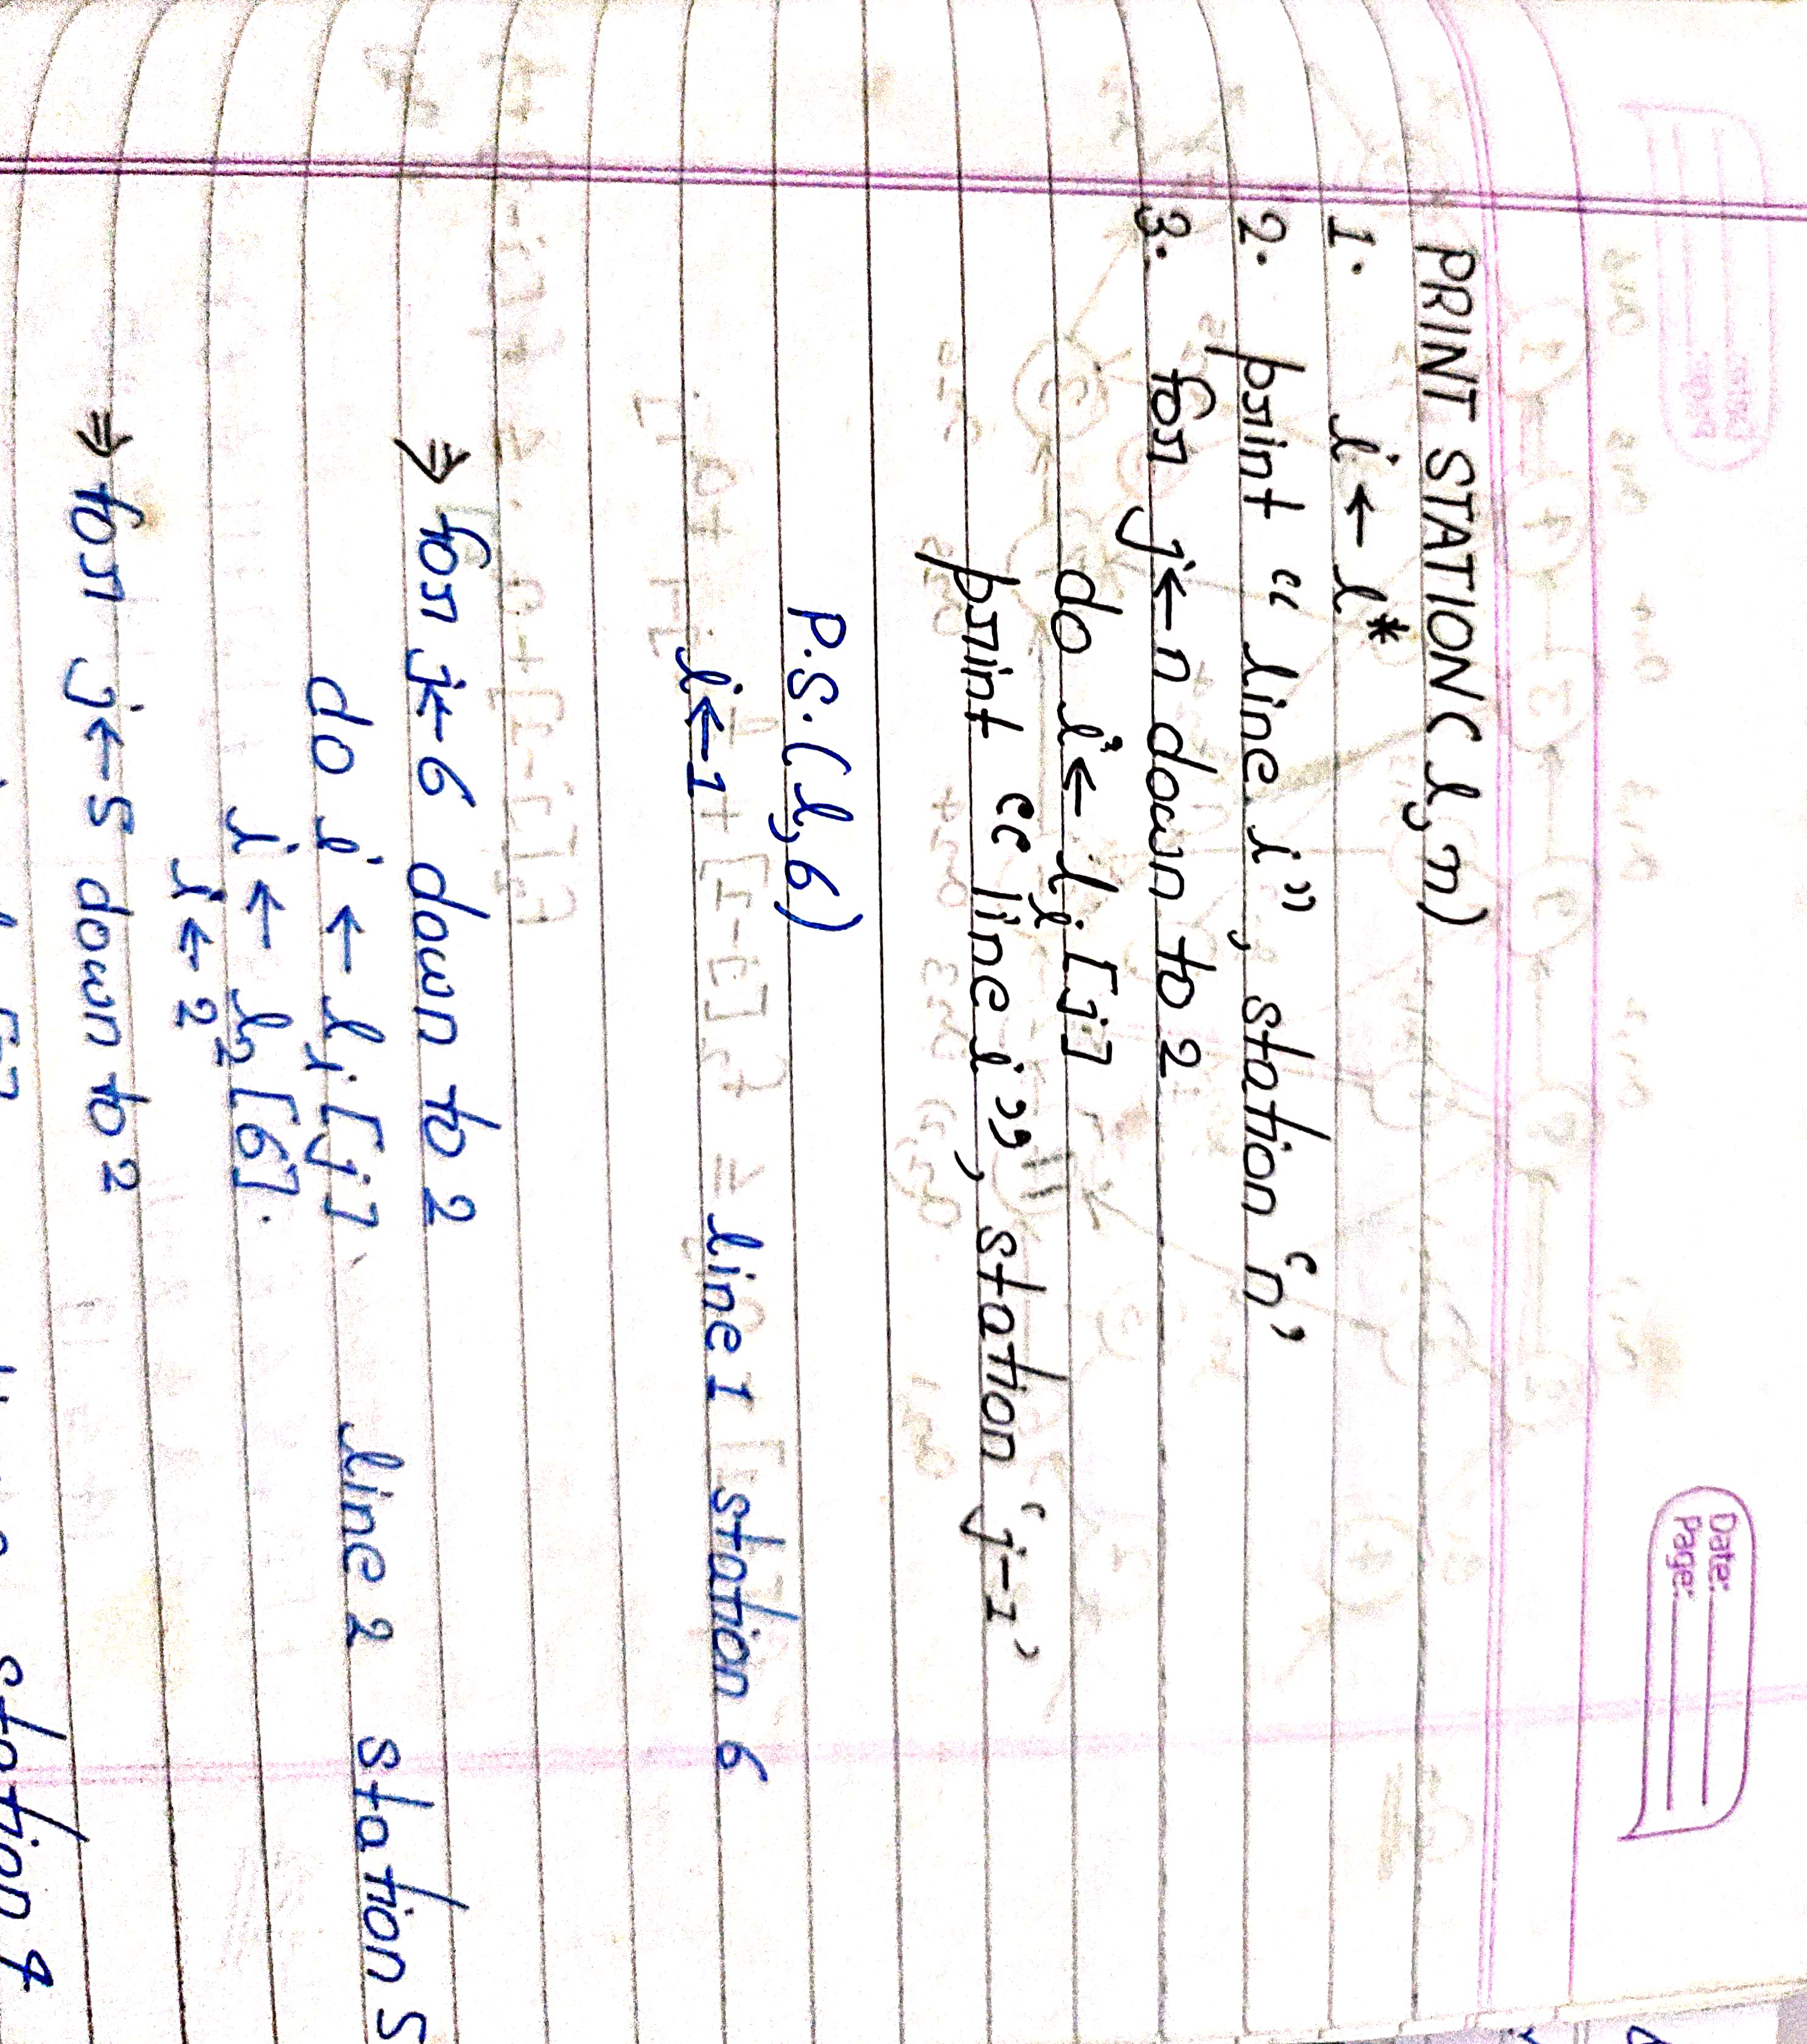 Date:
Page:
PRINT STATION(l,n)
1. i ← l*
2. print "line i", station 'n'
3. for j ← n down to 2
do i ← lᵢ[j]
print "line i", station 'j-1'
P.S.(l,6)
i ← 1 line 1 station 6
⇒ for j ← 6 down to 2
do i ← lᵢ[j] line 2 station 5
i ← l₂[6].
i ← 2
⇒ for j ← 5 down to 2
station 4